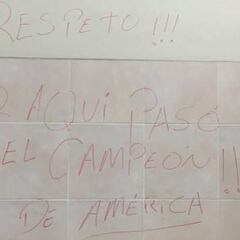 RESPETO!!!
R AQUI PASÓ
EL CAMPEON!!
DE AMÉRICA